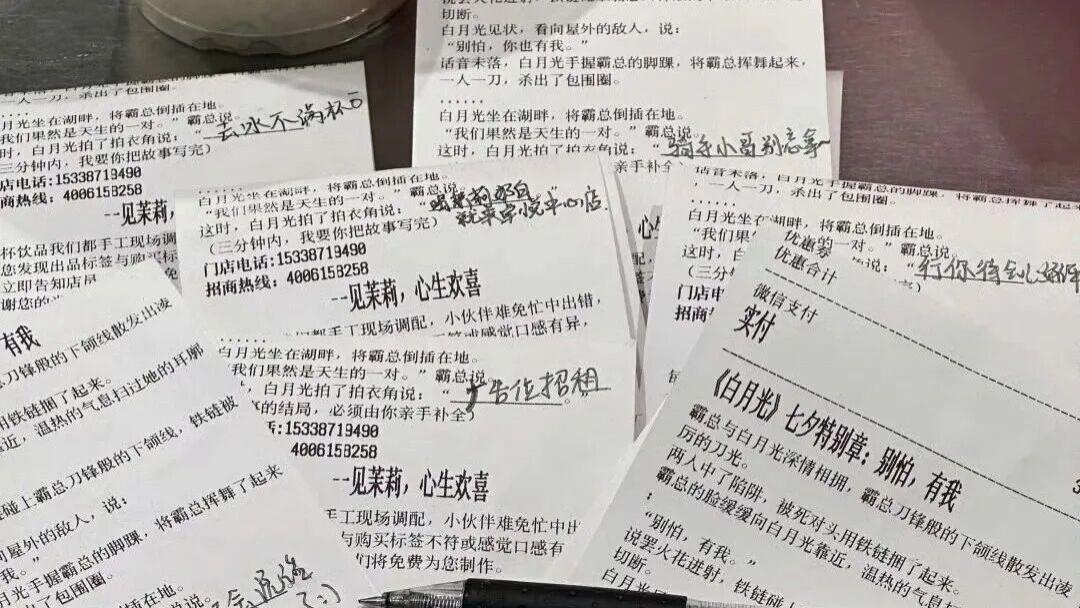 切断。
白月光见状，看向屋外的敌人，说：
“别怕，你也有我。”
话音未落，白月光手握霸总的脚踝，将霸总挥舞起来，
一人一刀，杀出了包围圈。
......
白月光坐在湖畔，将霸总倒插在地。
“我们果然是天生的一对。”霸总说。
这时，白月光拍了拍衣角说：“骑手小哥别忘拿
亲手补全
一人一刀，杀出了包围圈。
......
月光坐在湖畔，将霸总倒插在地。
我们果然是天生的一对。”霸总说。
时，白月光拍了拍衣角说：“去冰不满杯
三分钟内，我要你把故事写完）
店电话:15338719490
商热线：4006158258
--见茉莉，
杯饮品我们都手工现场调配
您发现出品标签与购买标
立即告知店员
谢您的
白月光坐在湖畔，将霸总倒插在地。
“我们果然是天生的一对。”霸总说。
这时，白月光拍了拍衣角说：“
中心店.
（三分钟内，我要你把故事写完）
门店电话:15338719490
招商热线：4006158258
--见茉莉，心生欢喜
们都手工现场调配，小伙伴难免忙中出错，
或感觉口感有异，
白月光坐在湖畔，将霸总倒插在地。
我们果然是天生的一对。”霸总说。
白月光拍了拍衣角说：“广告位招租。”
的结局，必须由你亲手补全）
话:15338719490
4006158258
--见茉莉，心生欢喜
手工现场调配，小伙伴难免忙中出
与购买标签不符或感觉口感有
们将免费为您制作。
话音未落，白月光手握霸总的脚踝，将霸总挥舞了起来
，一人一刀，杀出了包围圈。
......
白月光坐在湖畔，将霸总倒插在地。
“我们果然是天生的一对。”霸总说
这时，
说：“
（三分
门店电
招商热
有我
总刀锋般的下颌线散发出凌
用铁链捆了起来。
近，温热的气息扫过她的耳廓
碰上霸总刀锋般的下颌线，铁链被
向屋外的敌人，说：
我。”
月光手握霸总的脚踝，将霸总挥舞了起来
了包围圈。
将霸总倒插在地。
霸总说。
优惠券
优惠合计
微信支付
实付
《白月光》七夕特别章：别怕，有我
霸总与白月光深情相拥，霸总刀锋般的下颌线散发出凌
厉的刀光。
两人中了陷阱，被死对头用铁链捆了起来。
霸总的脸缓缓向白月光靠近，温热的气息
：
“别怕，有我。”
说罢火花迸射，铁链
切断。
白月光